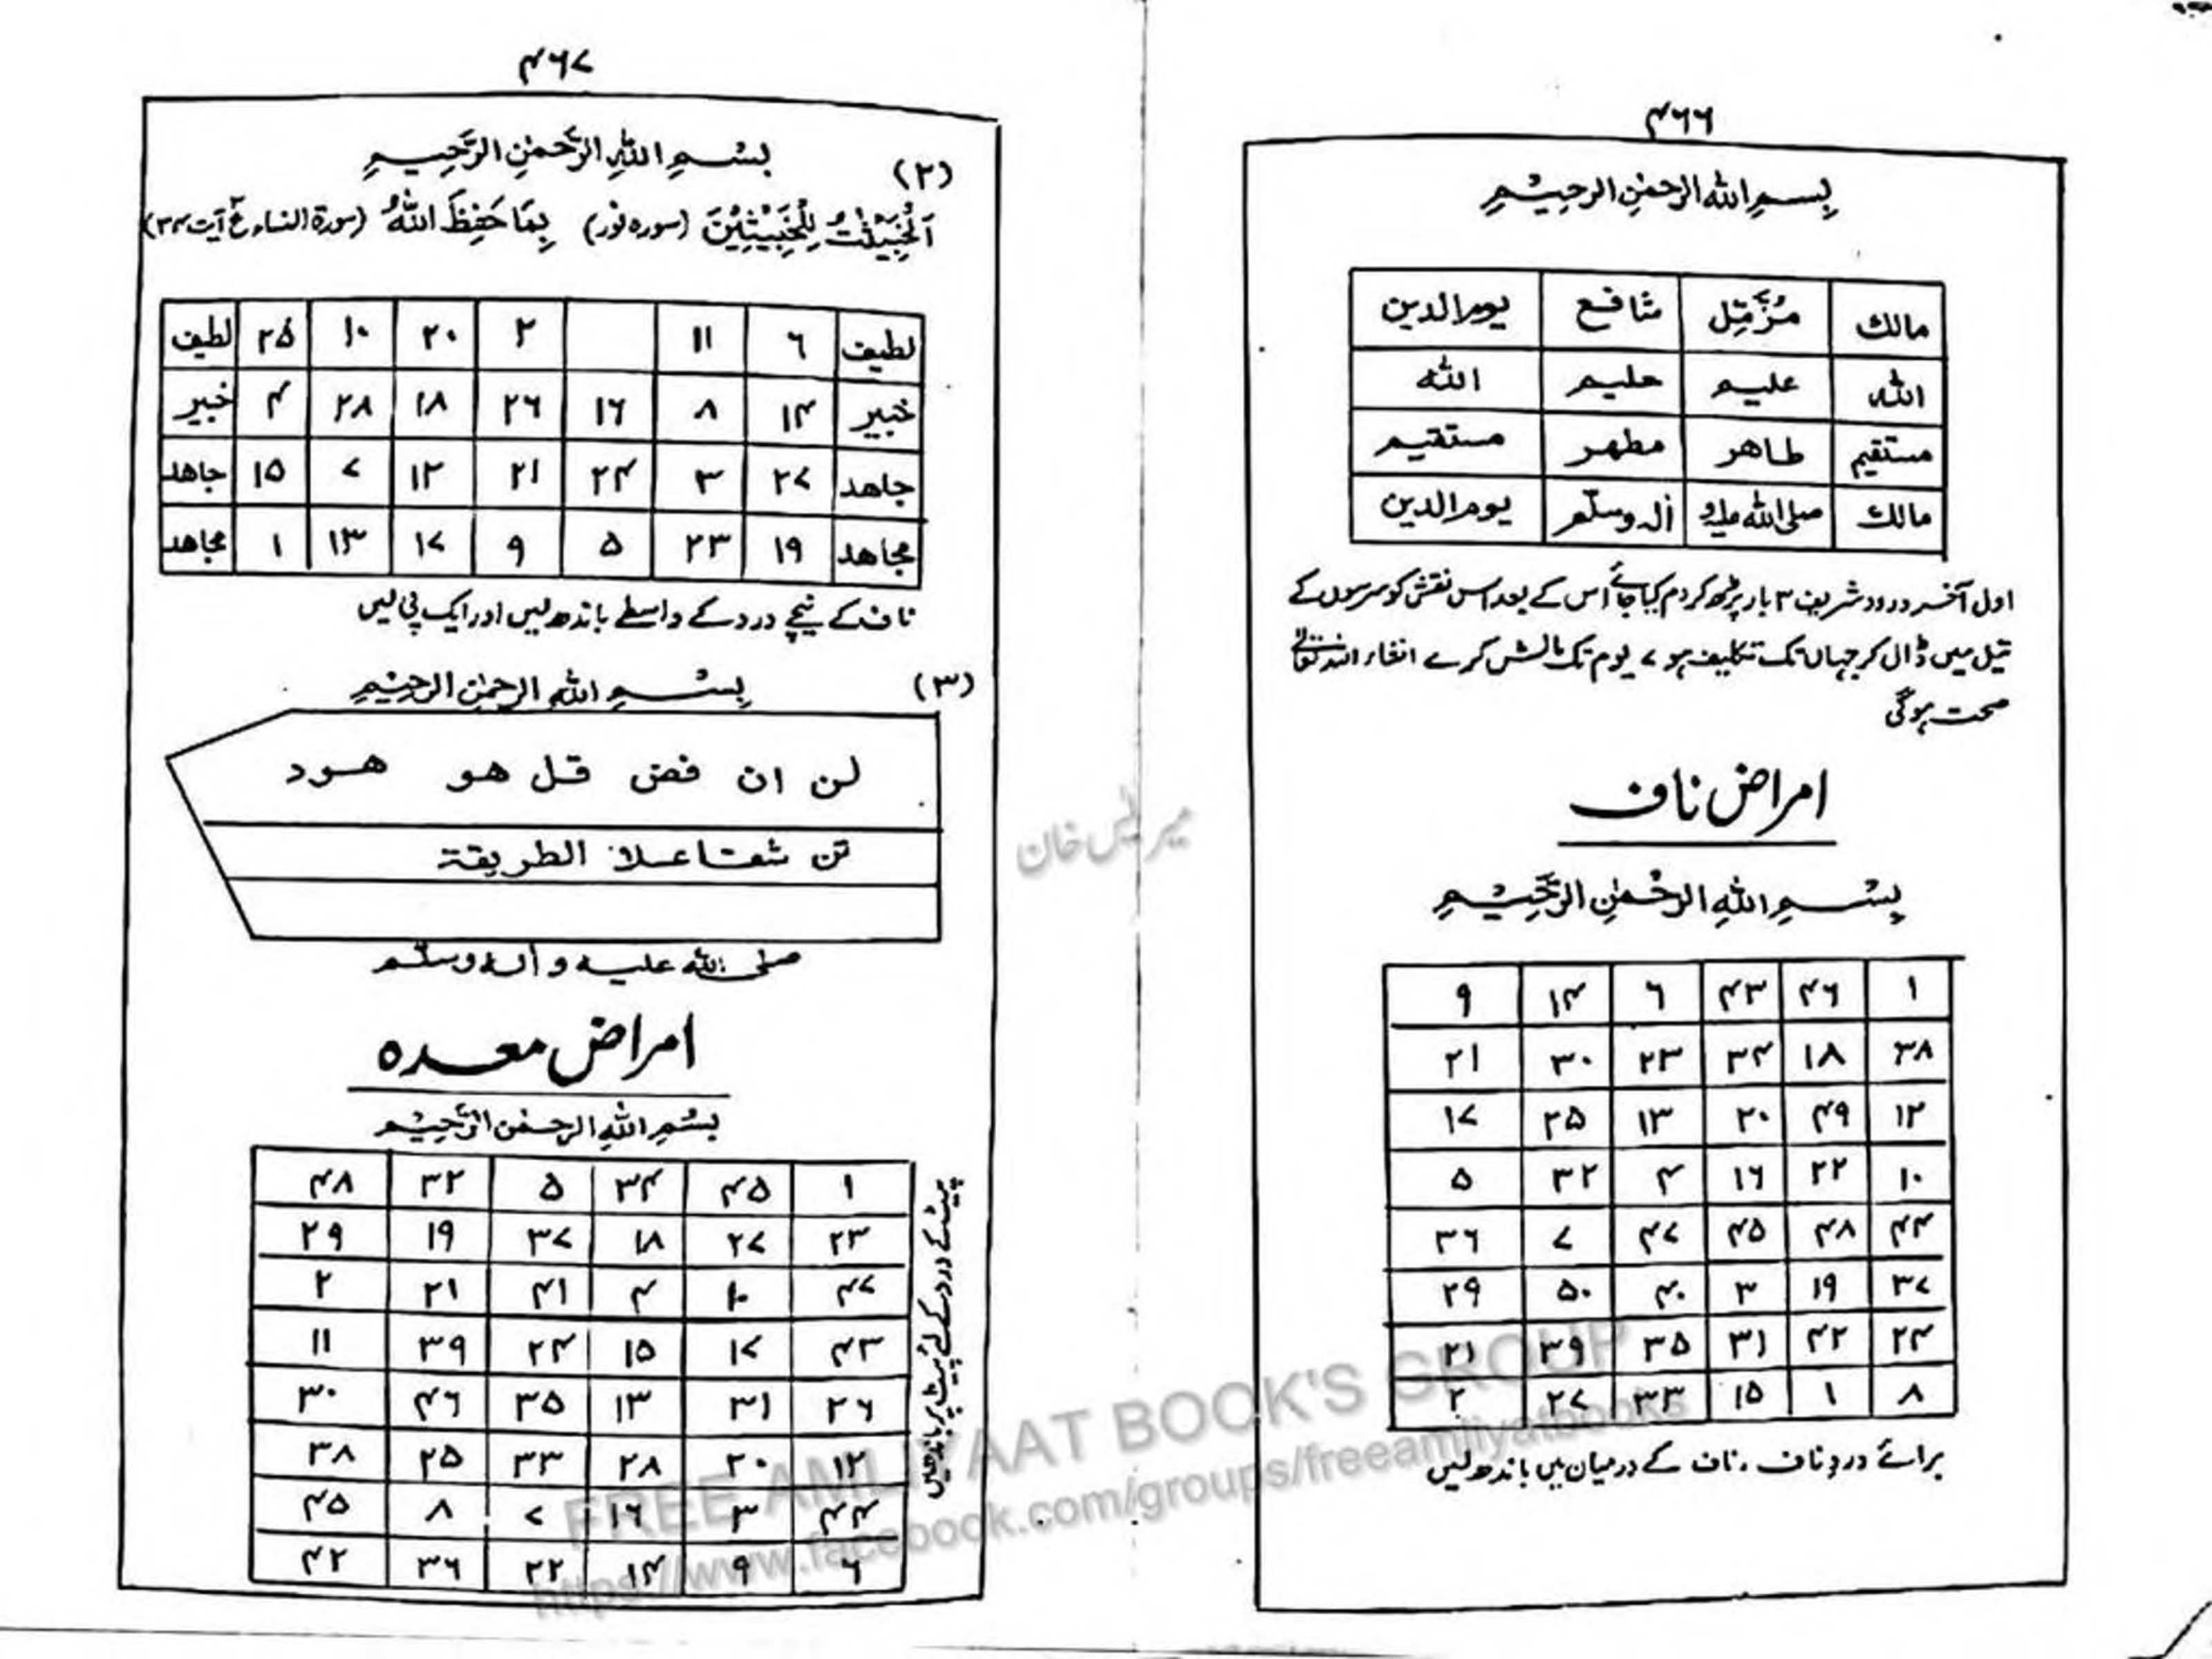 ۴۶۶
بِسمِ اللهِ الرحمٰنِ الرحِیمِ
مالك مُزَّمِّل شافع یوم الدین
الله علیم حلیم الله
مستقیم طاهر مطهر مستقیم
مالك صلی الله علیه و آله وسلم یوم الدین
اول آخر درود شریف ۳ بار پڑھ کر دم کیا جائے اس کے بعد اس نقش کو سرسوں کے
تیل میں ڈال کر جہاں تک تکلیف ہو ۷ یوم تک مالش کرے انشاء اللہ تعالیٰ
صحت ہو گی
امراض ناف
بِسْمِ اللهِ الرحْمٰنِ الرَّحِیْمِ
۱ ۴۶ ۴۳ ۶ ۱۴ ۹
۳۸ ۱۸ ۳۴ ۲۳ ۳۰ ۲۱
۱۲ ۴۹ ۲۰ ۱۳ ۲۵ ۱۷
۱۰ ۲۲ ۱۶ ۴ ۳۲ ۵
۴۴ ۴۸ ۴۵ ۴۷ ۷ ۳۶
۳۷ ۱۹ ۳ ۴۰ ۵۰ ۲۹
۲۴ ۴۲ ۳۱ ۳۵ ۳۹ ۲۱
۸ ۱ ۱۵ ۳۳ ۲۷ ۲
برائے درد ناف ، ناف کے درمیان میں باندھ لیں
۴۶۷
(۲) بِسْمِ اللهِ الرَّحمٰنِ الرَّحِیمِ
اَلْخَبِیْثٰتُ لِلْخَبِیْثِیْنَ (سورہ نور) بِمَا حَفِظَ اللهُ (سورة النساء ع آیت ۳۴)
لطیف ۶ ۱۱ ۲ ۲۰ ۱۰ ۲۵ لطیف
خبیر ۱۴ ۸ ۱۶ ۲۶ ۱۸ ۲۸ ۴ خبیر
جاهد ۲۷ ۳ ۲۴ ۲۱ ۱۲ ۷ ۱۵ جاهد
مجاهد ۱۹ ۲۳ ۵ ۹ ۱۷ ۱۳ ۱ مجاهد
ناف کے نیچے درد کے واسطے باندھ لیں اور ایک پی لیں
(۳) بِسْمِ اللهِ الرحمٰنِ الرحِیْمِ
لن ان فض قل هو هود
تن شفتا علا الطریقة
صلی الله علیه و آله وسلم
امراض معدہ
بِسْمِ اللهِ الرحمٰن الرَّحِیْمِ
۱ ۴۵ ۳۴ ۵ ۳۲ ۴۸
۲۳ ۲۷ ۱۸ ۳۷ ۱۹ ۲۹
۴۷ ۱۰ ۴ ۴۱ ۲۱ ۲
۴۳ ۱۷ ۱۵ ۲۴ ۳۹ ۱۱
۲۶ ۳۱ ۱۳ ۳۵ ۴۶ ۳۰
۱۲ ۲۰ ۲۸ ۳۳ ۲۵ ۳۸
۴۴ ۳ ۱۶ ۷ ۸ ۴۵
۶ ۹ ۱۴ ۲۲ ۳۶ ۴۲
پیٹ کے درد کے لئے پیٹ پر باندھیں
خان
FREE AMLIYAAT BOOK'S GROUP
https://www.facebook.com/groups/freeamliyatbooks